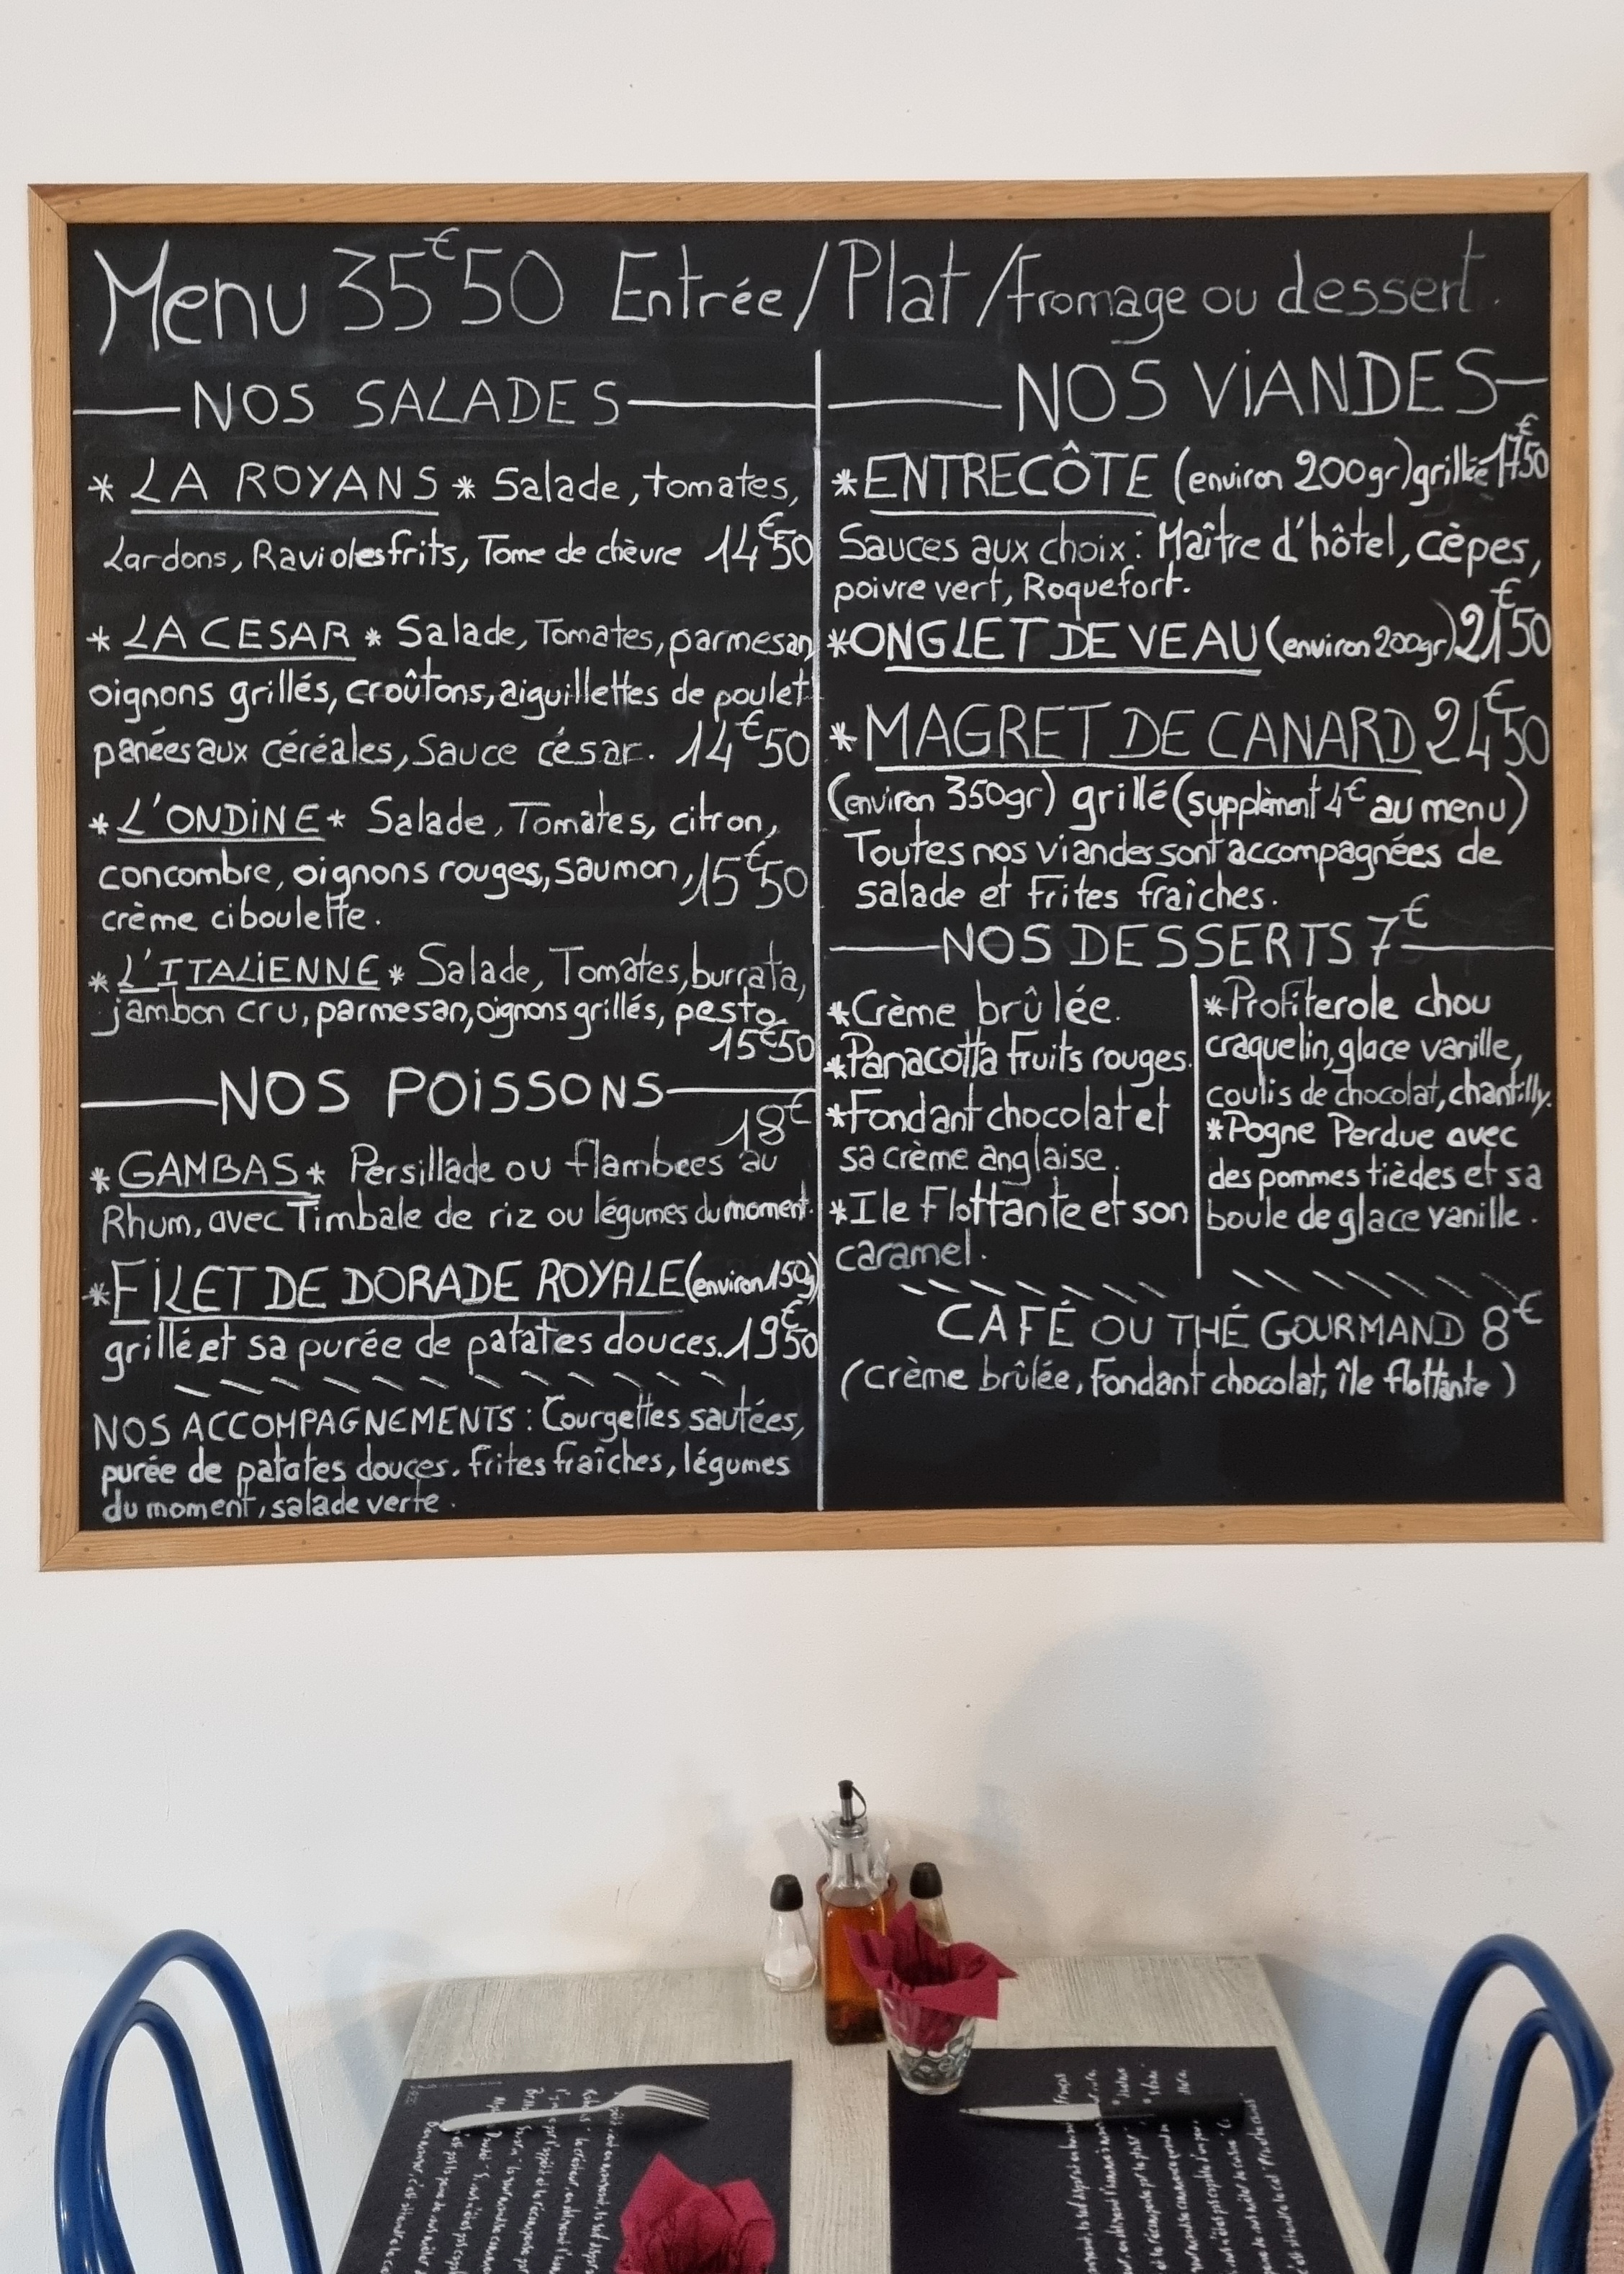 Menu 35€50 Entrée/Plat/fromage ou dessert.
NOS SALADES
* LA ROYANS * Salade, tomates,
Lardons, Ravioles frits, Tome de chèvre 14€50
* LA CESAR * Salade, Tomates, parmesan,
oignons grillés, croûtons, aiguillettes de poulet
panées aux céréales, Sauce césar. 14€50
* L'ONDINE * Salade, Tomates, citron,
concombre, oignons rouges, saumon, 15€50
crème ciboulette.
* L'ITALIENNE * Salade, Tomates, burrata,
jambon cru, parmesan, oignons grillés, pesto
15€50
NOS POISSONS
18€
* GAMBAS * Persillade ou flambees au
Rhum, avec Timbale de riz ou légumes du moment.
* FILET DE DORADE ROYALE (environ 150g)
grillé et sa purée de patates douces. 19€50
NOS ACCOMPAGNEMENTS : Courgettes sautées,
purée de patates douces, frites fraîches, légumes
du moment, salade verte.
NOS VIANDES
* ENTRECÔTE (environ 200gr) grillée 17€50
Sauces aux choix : Maître d'hôtel, cèpes,
poivre vert, Roquefort.
* ONGLET DE VEAU (environ 200gr) 21€50
* MAGRET DE CANARD 24€50
(environ 350gr) grillé (supplèment 4€ au menu)
Toutes nos viandes sont accompagnées de
salade et frites fraîches.
NOS DESSERTS 7€
* Crème brûlée.
* Panacotta fruits rouges.
* Fondant chocolat et
sa crème anglaise.
* Ile Flottante et son
caramel.
* Profiterole chou
craquelin, glace vanille,
coulis de chocolat, chantilly.
* Pogne Perdue avec
des pommes tièdes et sa
boule de glace vanille.
CAFÉ OU THÉ GOURMAND 8€
(crème brûlée, fondant chocolat, île flottante)